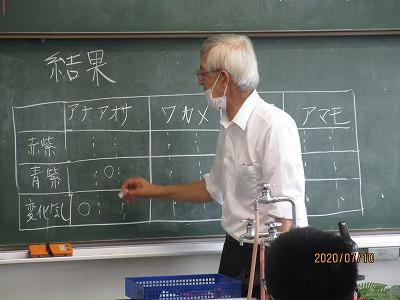 結果
アナアオサ ワカメ アマモ
赤紫
青紫 ○
変化なし ○
2020/07/10